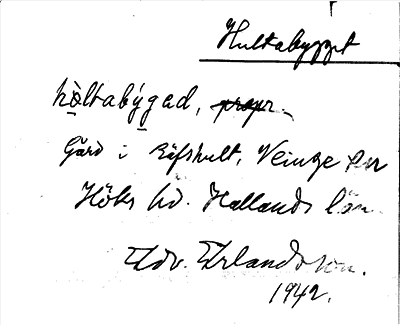 Hultabygget
hòltabýgad, propr.
Gård i Räfshult, Veinge sn
Höks hd. Hallands län.
Edv. Erlandsson.
1942.